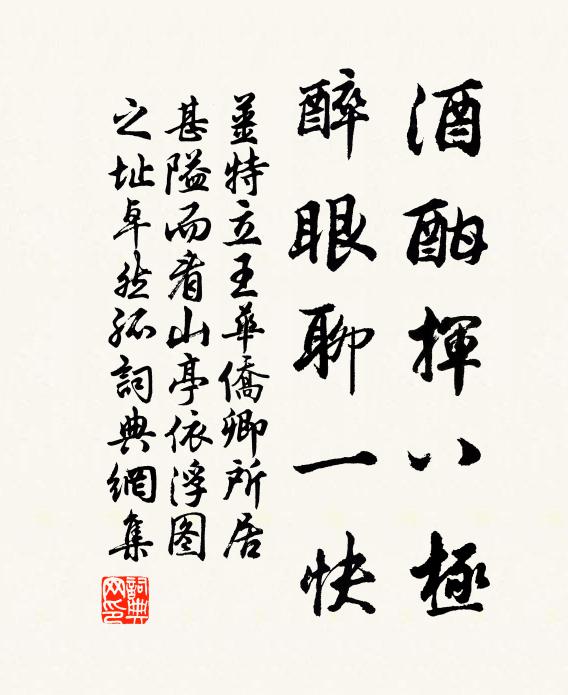 酒酣揮八極
醉眼聊一快
姜特立王華僑卿所居
甚隘而看山亭依浮图
之址卓然孤詞典網集
詞典